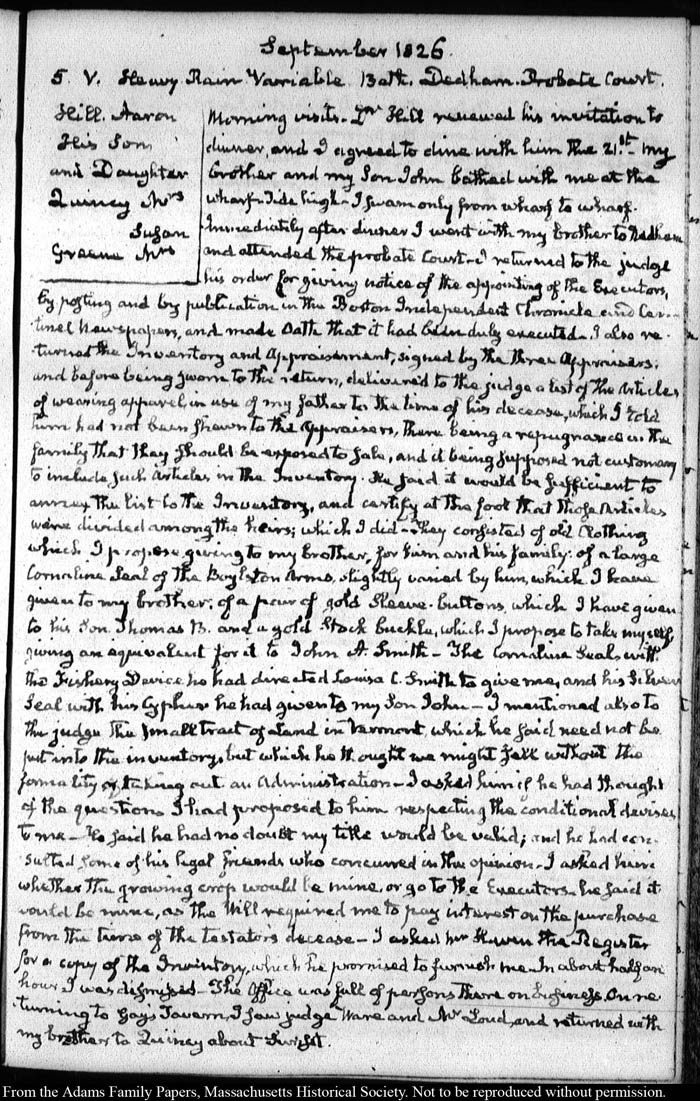 September 1826.
5. V. Heavy Rain Variable. Bath. Dedham. Probate Court.
Hill. Aaron
His Son
and Daughter
Quincy Mrs
Susan
Greene Mrs
Morning visits. Dr Hill renewed his invitation to
dinner, and I agreed to dine with him the 21st. My
brother and my Son John bathed with me at the
wharf. Tide high. I swam only from wharf to wharf.
Immediately after dinner I went with my brother to Dedham
and attended the probate Court. I returned to the judge
his order for giving notice of the appointing of the Executors,
by posting and by publication in the Boston Independent Chronicle and Cen-
tinel Newspapers, and made Oath that it had been duly executed. I also re-
turned the Inventory and Appraisement, signed by the three Appraisers.
and before being sworn to the return, delivered to the judge a list of the Articles
of wearing apparel in use of my father to the time of his decease, which I told
him had not been shewn to the Appraisers, there being a repugnance in the
family that they should be exposed to sale, and it being supposed not customary
to include such Articles in the Inventory. He said it would be sufficient to
annex the list to the Inventory, and certify at the foot that those Articles
were divided among the heirs; which I did. They consisted of old Clothing
which I propose giving to my brother, for him and his family: of a large
Cornaline Seal of the Boylston Arms, slightly varied by him, which I have
given to my brother: of a pair of gold Sleeve-buttons, which I have given
to his Son Thomas B. and a gold Stock buckle, which I propose to take myself,
giving an equivalent for it to John A. Smith — The Cornaline Seal, with
the Fishery Device he had directed Louisa C. Smith to give me, and his Silver
Seal with his Cypher he had given to my Son John — I mentioned also to
the judge the small tract of Land in Vermont, which he said need not be
put into the inventory, but which he thought we might sell without the
formality of taking out an Administration — I asked him if he had thought
of the questions I had proposed to him respecting the conditional devises
to me — He said he had no doubt my title would be valid; and he had con-
sulted some of his legal friends who concurred in the opinion. I asked him
whether the growing crop would be mine, or go to the Executors. he said it
would be mine, as the Will required me to pay interest on the purchase
from the time of the testator's decease — I asked Mr Haven the Register
for a copy of the Inventory, which he promised to furnish me. In about half an
hour I was dismissed — The Office was full of persons there on business. On re-
turning to Gay's Tavern, I saw judge Ware and Mr Loud, and returned with
my brother to Quincy about Twilight.
From the Adams Family Papers, Massachusetts Historical Society. Not to be reproduced without permission.